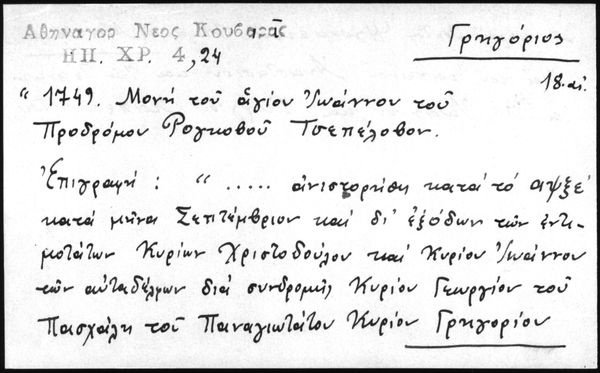 Αθηναγορ Νεος Κουβαρᾶς
ΗΠ. ΧΡ. 4, 24
Γρηγόριος
18. αἰ.
" 1749. Μονή τοῦ ἁγίου Ἰωάννου τοῦ
Προδρόμου Ρογκοβοῦ Τσεπέλοβον.
Ἐπιγραφή : " ..... ἀνιστορήθη κατά τό αψξε΄
κατά μῆνα Σεπτέμβριον καί δι' ἐξόδων τῶν ἐντι-
μοτάτων Κυρίων Χριστοδούλου καί Κυρίου Ἰωάννου
τῶν αὐταδέλφων διά συνδρομῆς Κυρίου Γεωργίου τοῦ
Πασχάλη τοῦ Παναγιωτάτου Κυρίου Γρηγορίου